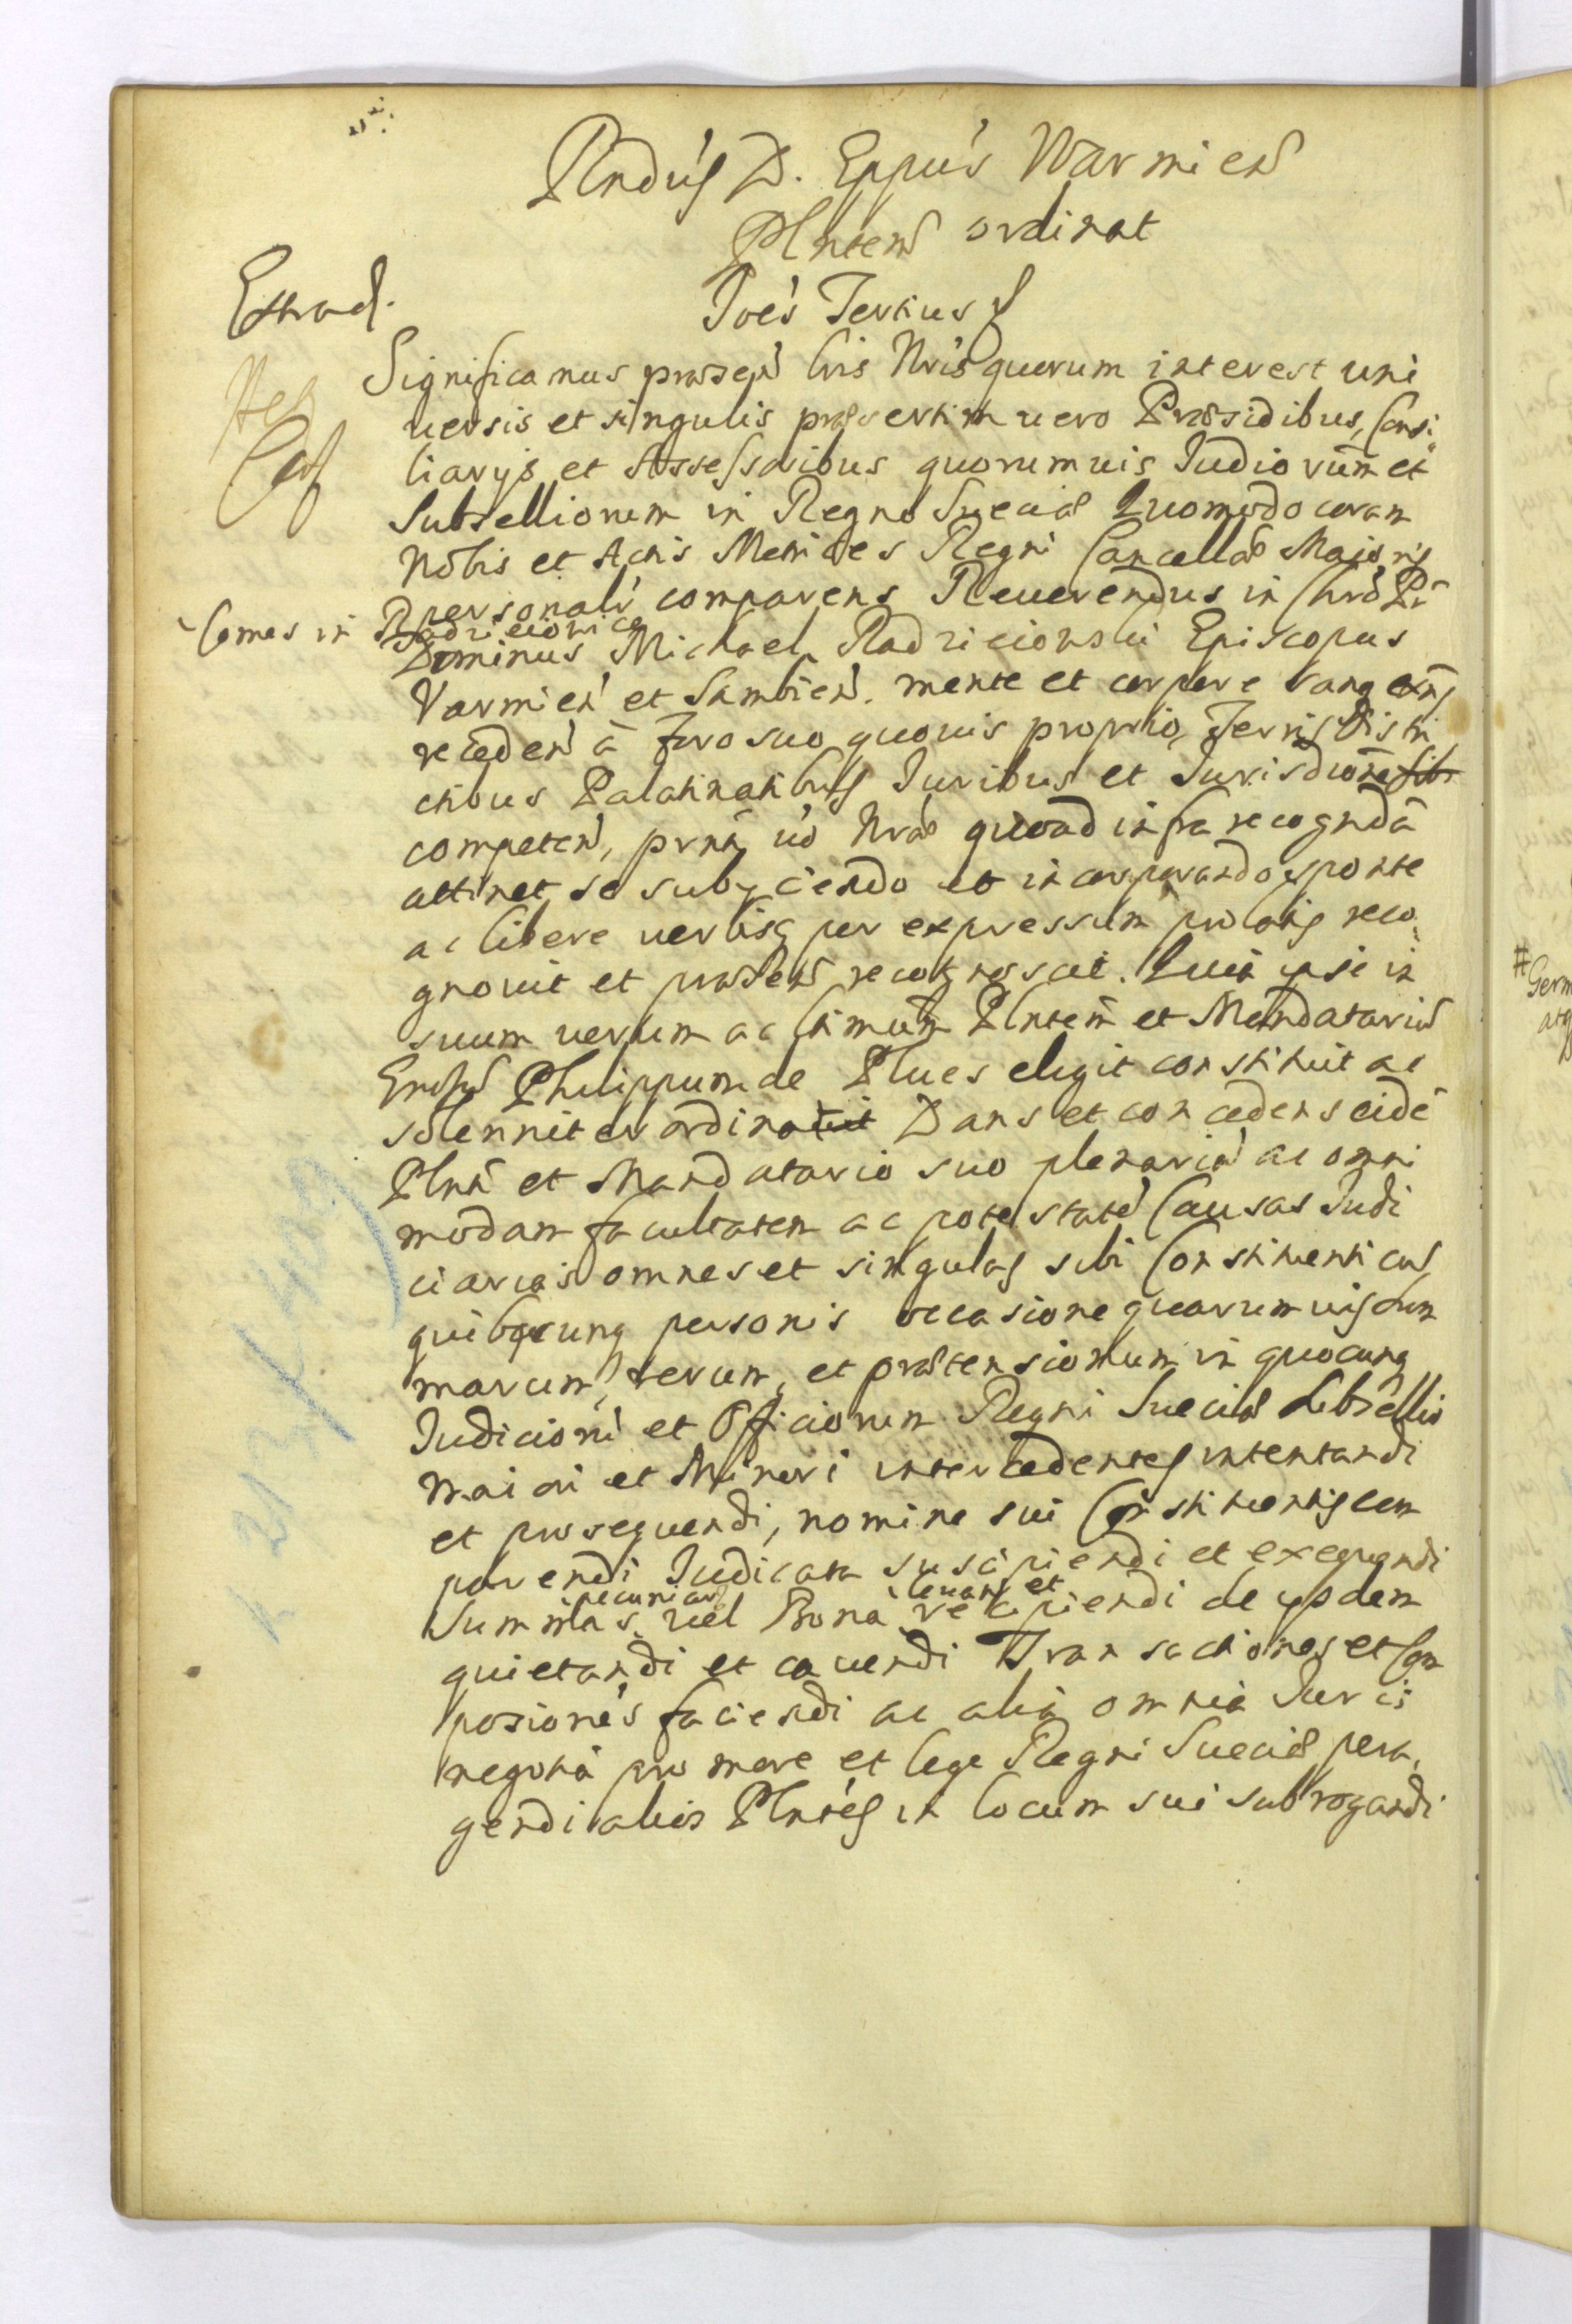 Rndus D. Eppus Warmien
Plnten ordinat
Extrad.
Joes Tertius
Significamus præsen lris Nris quorum interest uni
uersis et singulis præsertim uero Præsidibus, Consi
liarys et Assessoribus quorumuis Judiorum et
Subselliorum in Regno Sueciæ Quomodo coram
Nobis et Actis Metrices Regni Cancellæ Maioris
personalr comparens Reuerendus in Chro Pr
Comes in Radzieiowice
Dominus Michael Radzieiowski Episcopus
Varmien et Sambien. mente et corpore sang exns
receden à foro suo quouis proprio, Terris Distri
ctibus Palatinatibus Juribus et Jurisdione sibi
competen, prnti uo Nræ quoad infra recognda
attinet se subyciendo et incorporando sponte
ac libere uerbisq per expressum prolatis reco
gnouit et præsen recognoscit. Quia ipse in
suum uerum ac ltimum Plntem et Mandatarium
Philippum de Plues elegit constituit ac
solenniter ordinauit Dans et concedens eide
Plnti et Mandatario suo plenaria ac omni
modam facultatem ac potestate Causas Judi
ciarias omnes et singulas sibi Constituenti cus
quibuscunq personis occasione quarumuis sum
marum, rerum, et prætensionum in quocunq
Judicioru et Officiorum Regni Sueciæ subsellio
Maiori et Minori intercedentes intentandi
et prosequendi, nomine sui Constituentis com
parendi Judicata suscipiendi et exequendi
pecunias leuandi et
Summas uel Bona recipiendi de ysdem
quietandi et cauendi Transactiones et Com
posiones faciendi ac alia omnia Juris
negotia pro more et lege Regni Sueciæ pera
gendi alios Plntes in locum sui subrogandi
#
Germ